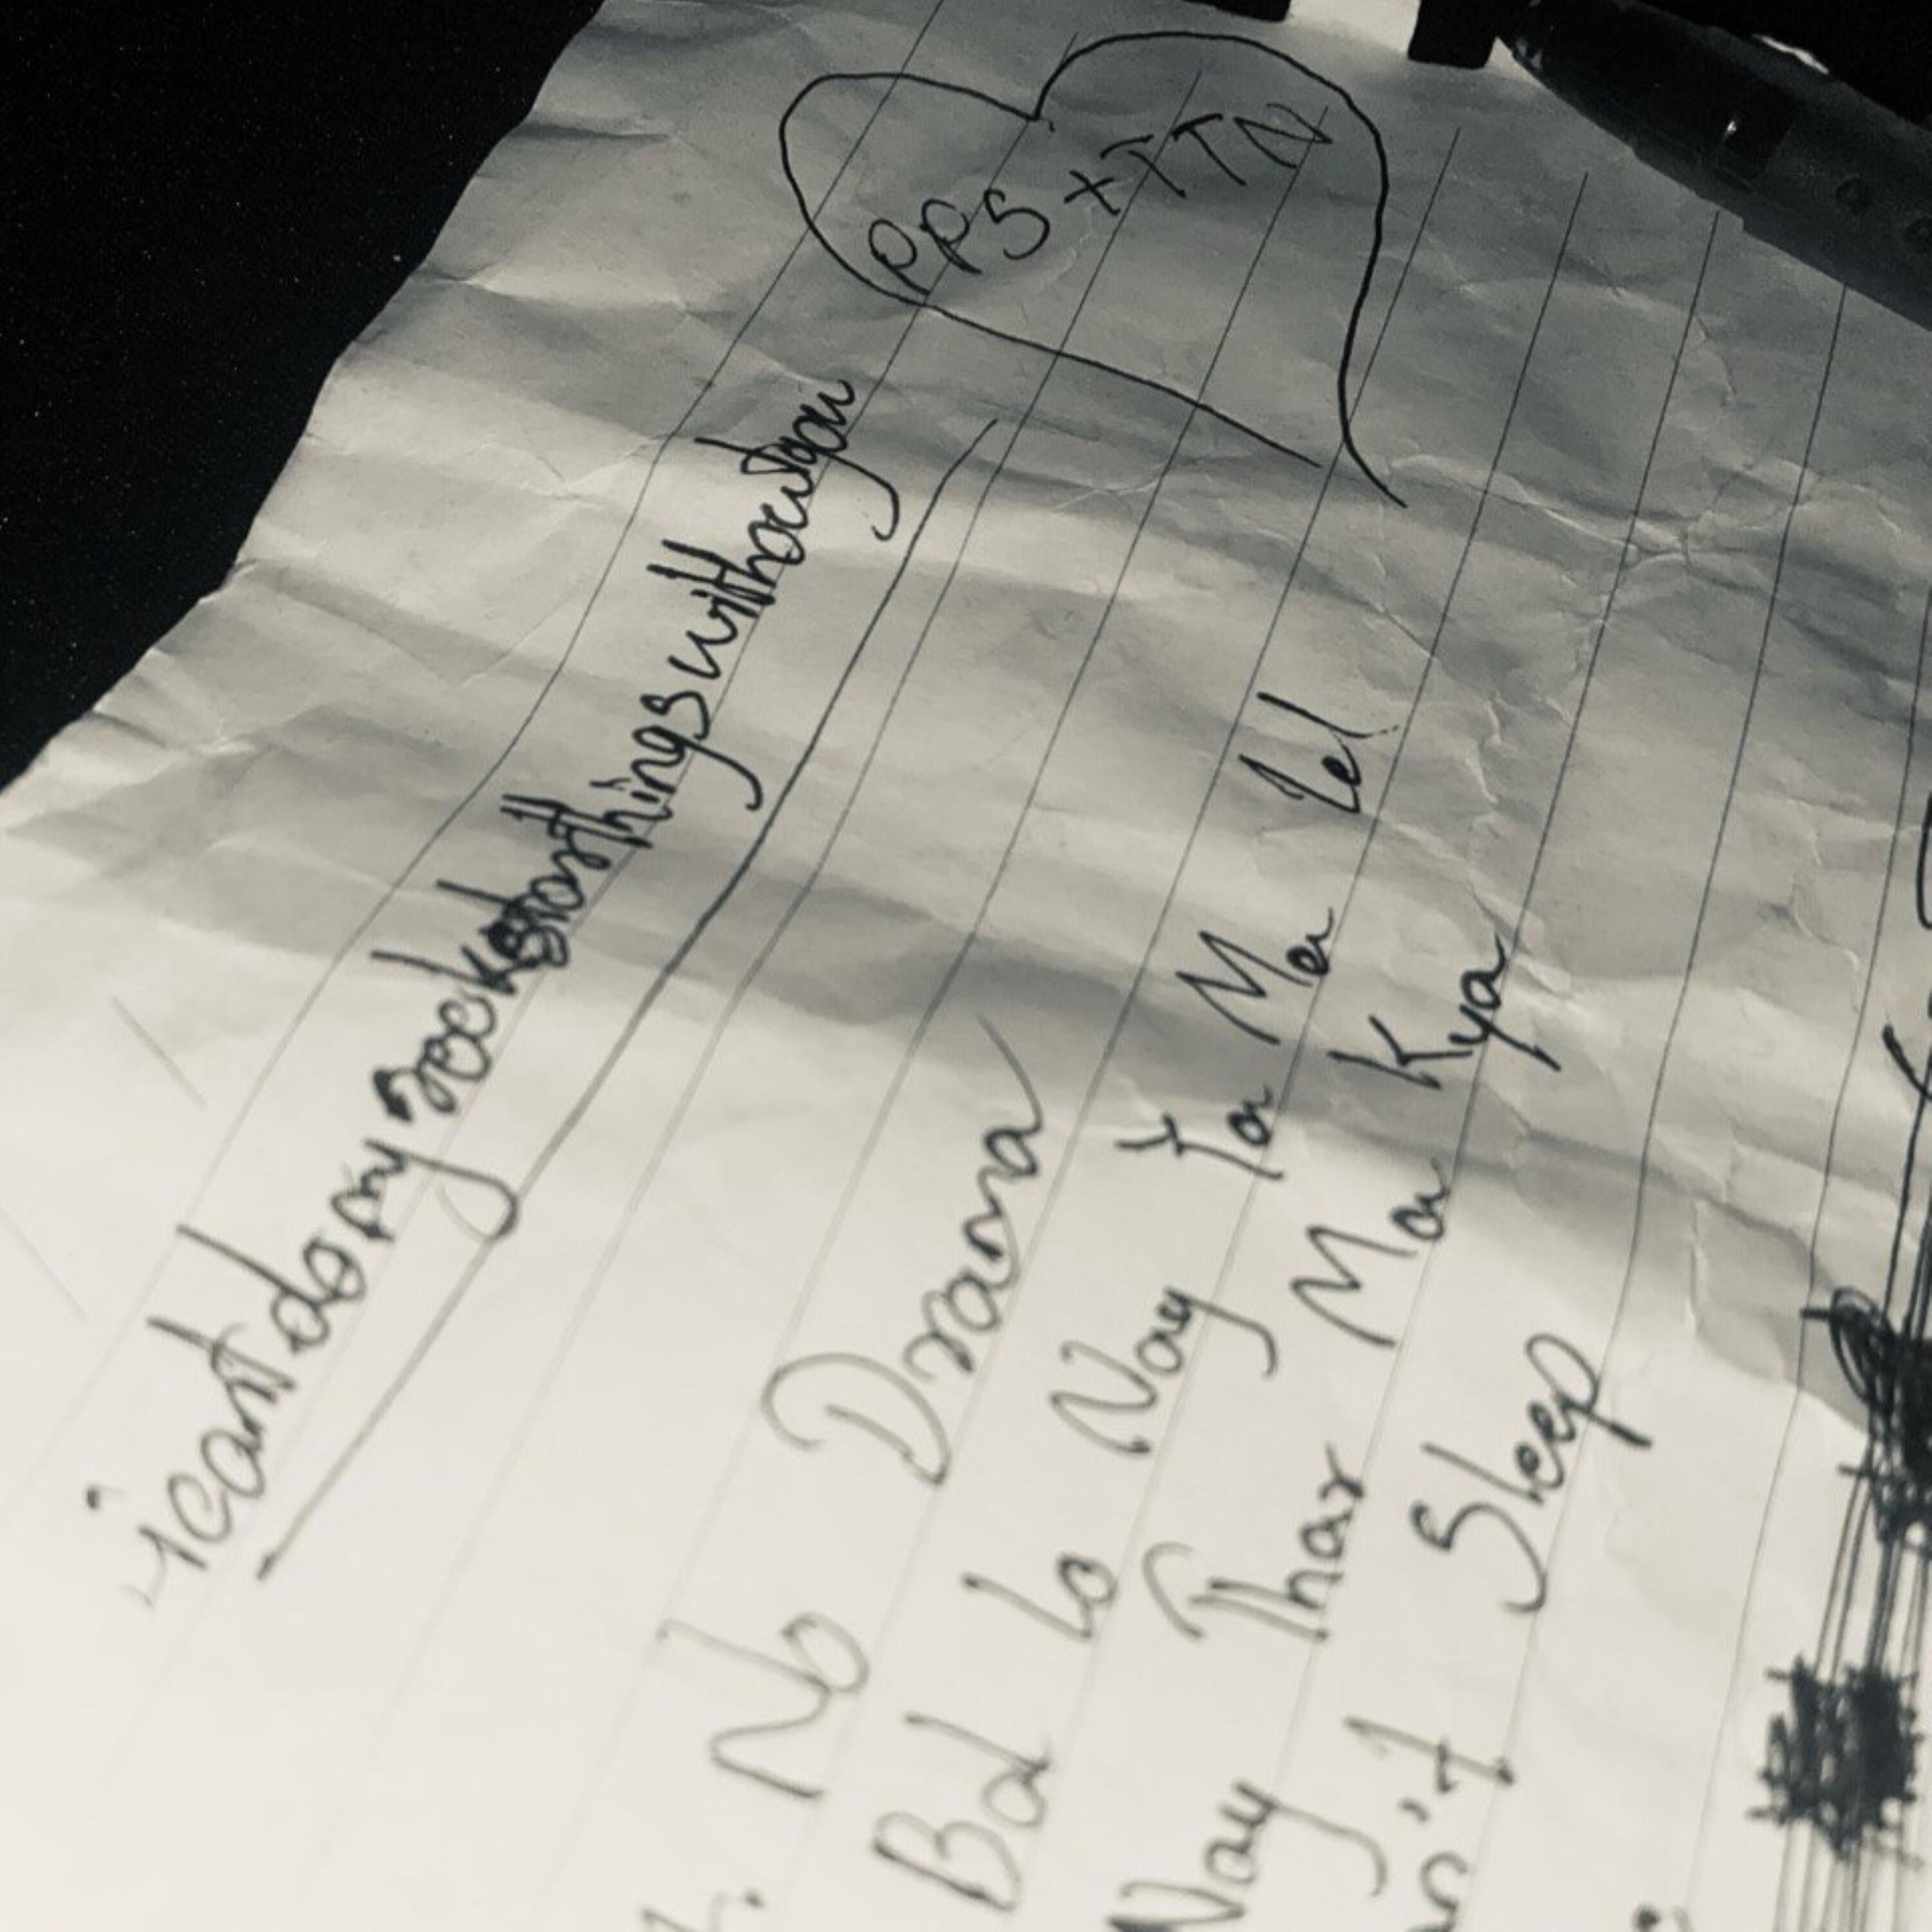 PPS x TTN
icantdomy
thingswithoutyou
1. No Drama
Bal Lo Nay Ya Ma Lel
Nay Thar Ma Kya
n't Sleep